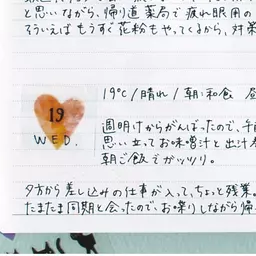 と思いながら、帰り道薬局で疲れ眼用の
そういえばもうすぐ花粉もやってくるから、対策
19
WED.
19℃/晴れ/朝:和食
週明けからがんばったので、
思い立ってお味噌汁と出汁
朝ご飯でガッツリ。
夕方から差し込みの仕事が入って、ちょっと残業。
たまたま同期と会ったので、お喋りしながら帰